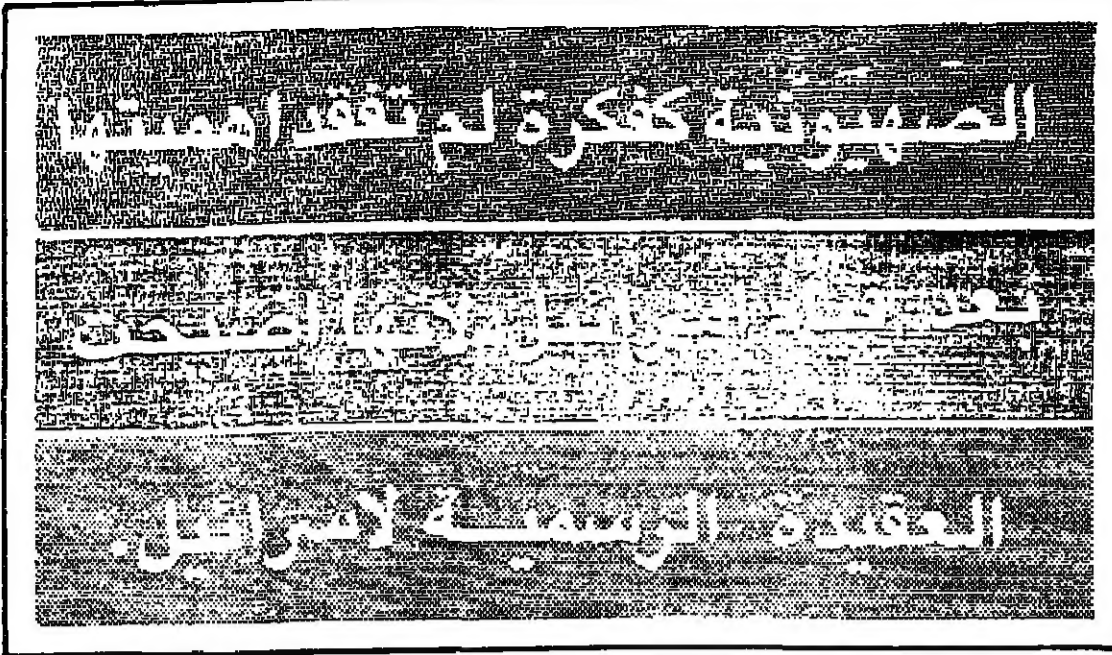 الصهيونية كفكرة لم تفقد اهميتها
بعد اسرائيل لانها اصبحت
العقيدة الرسمية لاسرائيل.